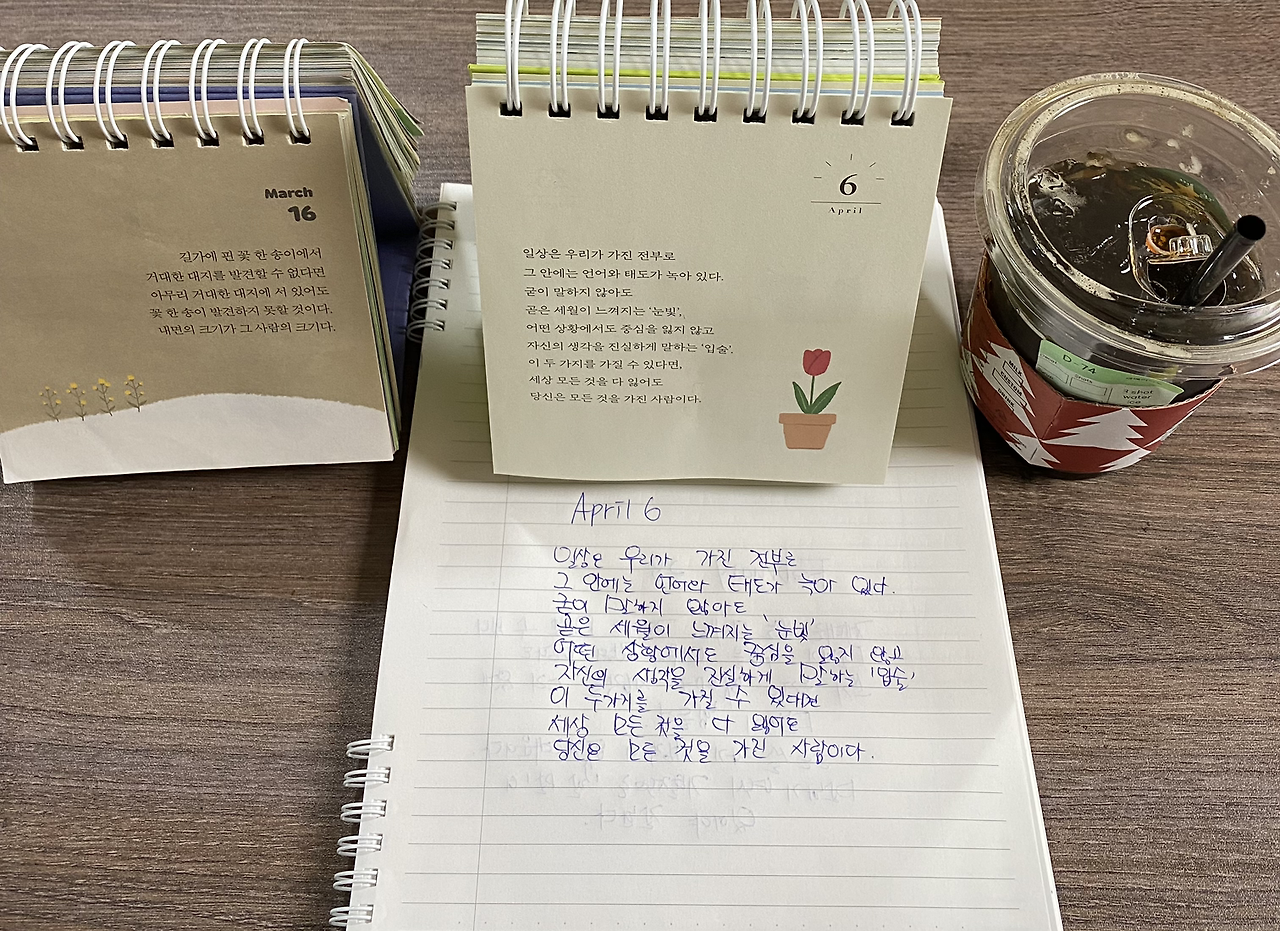 March
16
길가에 핀 꽃 한 송이에서
거대한 대지를 발견할 수 없다면
아무리 거대한 대지에 서 있어도
꽃 한 송이 발견하지 못할 것이다.
내면의 크기가 그 사람의 크기다.
6
April
일상은 우리가 가진 전부로
그 안에는 언어와 태도가 녹아 있다.
굳이 말하지 않아도
곧은 세월이 느껴지는 ‘눈빛’,
어떤 상황에서도 중심을 잃지 않고
자신의 생각을 진실하게 말하는 ‘입술’,
이 두 가지를 가질 수 있다면,
세상 모든 것을 다 잃어도
당신은 모든 것을 가진 사람이다.
D 74
shot
water
ice
April 6
일상은 우리가 가진 전부로
그 안에는 언어와 태도가 녹아 있다.
굳이 말하지 않아도
곧은 세월이 느껴지는 '눈빛'
어떤 상황에서도 중심을 잃지 않고
자신의 생각을 진실하게 말하는 '입술'
이 두가지를 가질 수 있다면
세상 모든 것을 다 잃어도
당신은 모든 것을 가진 사람이다.